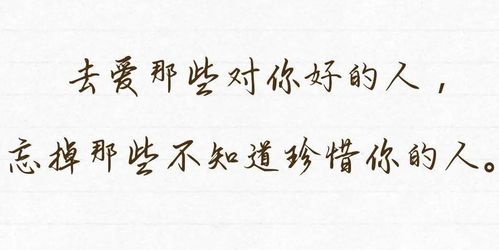 去爱那些对你好的人，
忘掉那些不知道珍惜你的人。